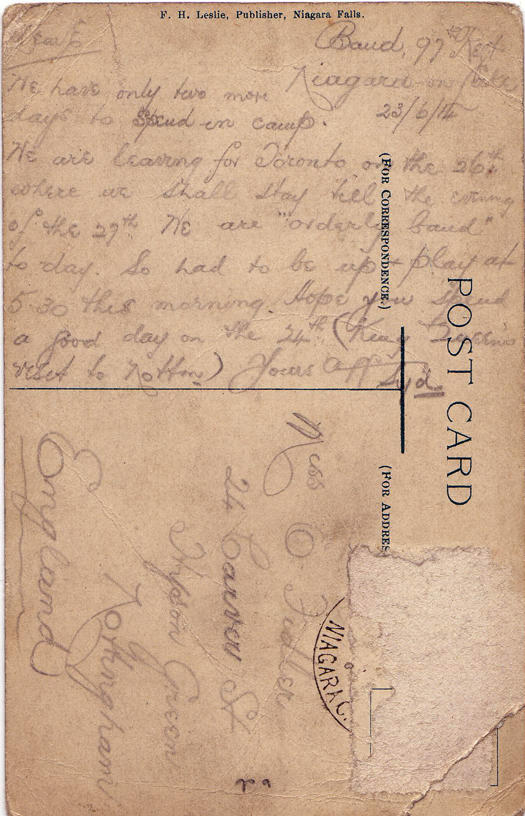 F. H. Leslie, Publisher, Niagara Falls.
Band, 97th Regt
Niagara-on-Lake
23/6/14
Dear
We have only two more
days to spend in camp.
We are leaving for Toronto on the 26th
where we shall stay till the evening
of the 27th. We are "orderly band"
to day. So had to be up + play at
5-30 this morning. Hope you spend
a good day on the 24th (King + Queen's
visit to Nottm) Yours aff Syd
(FOR CORRESPONDENCE.)
POST CARD
(FOR ADDRESS
NIAGARA
Miss O Fidler
24 Carver St
Hyson Green
Nottingham
England